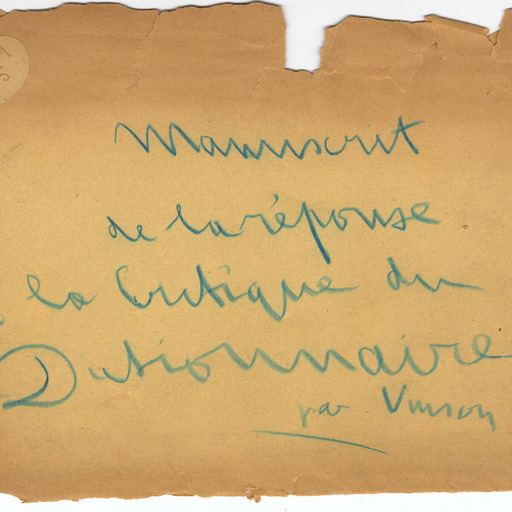 Manuscrit
de la réponse
la Critique du
Dictionnaire
par Vinson